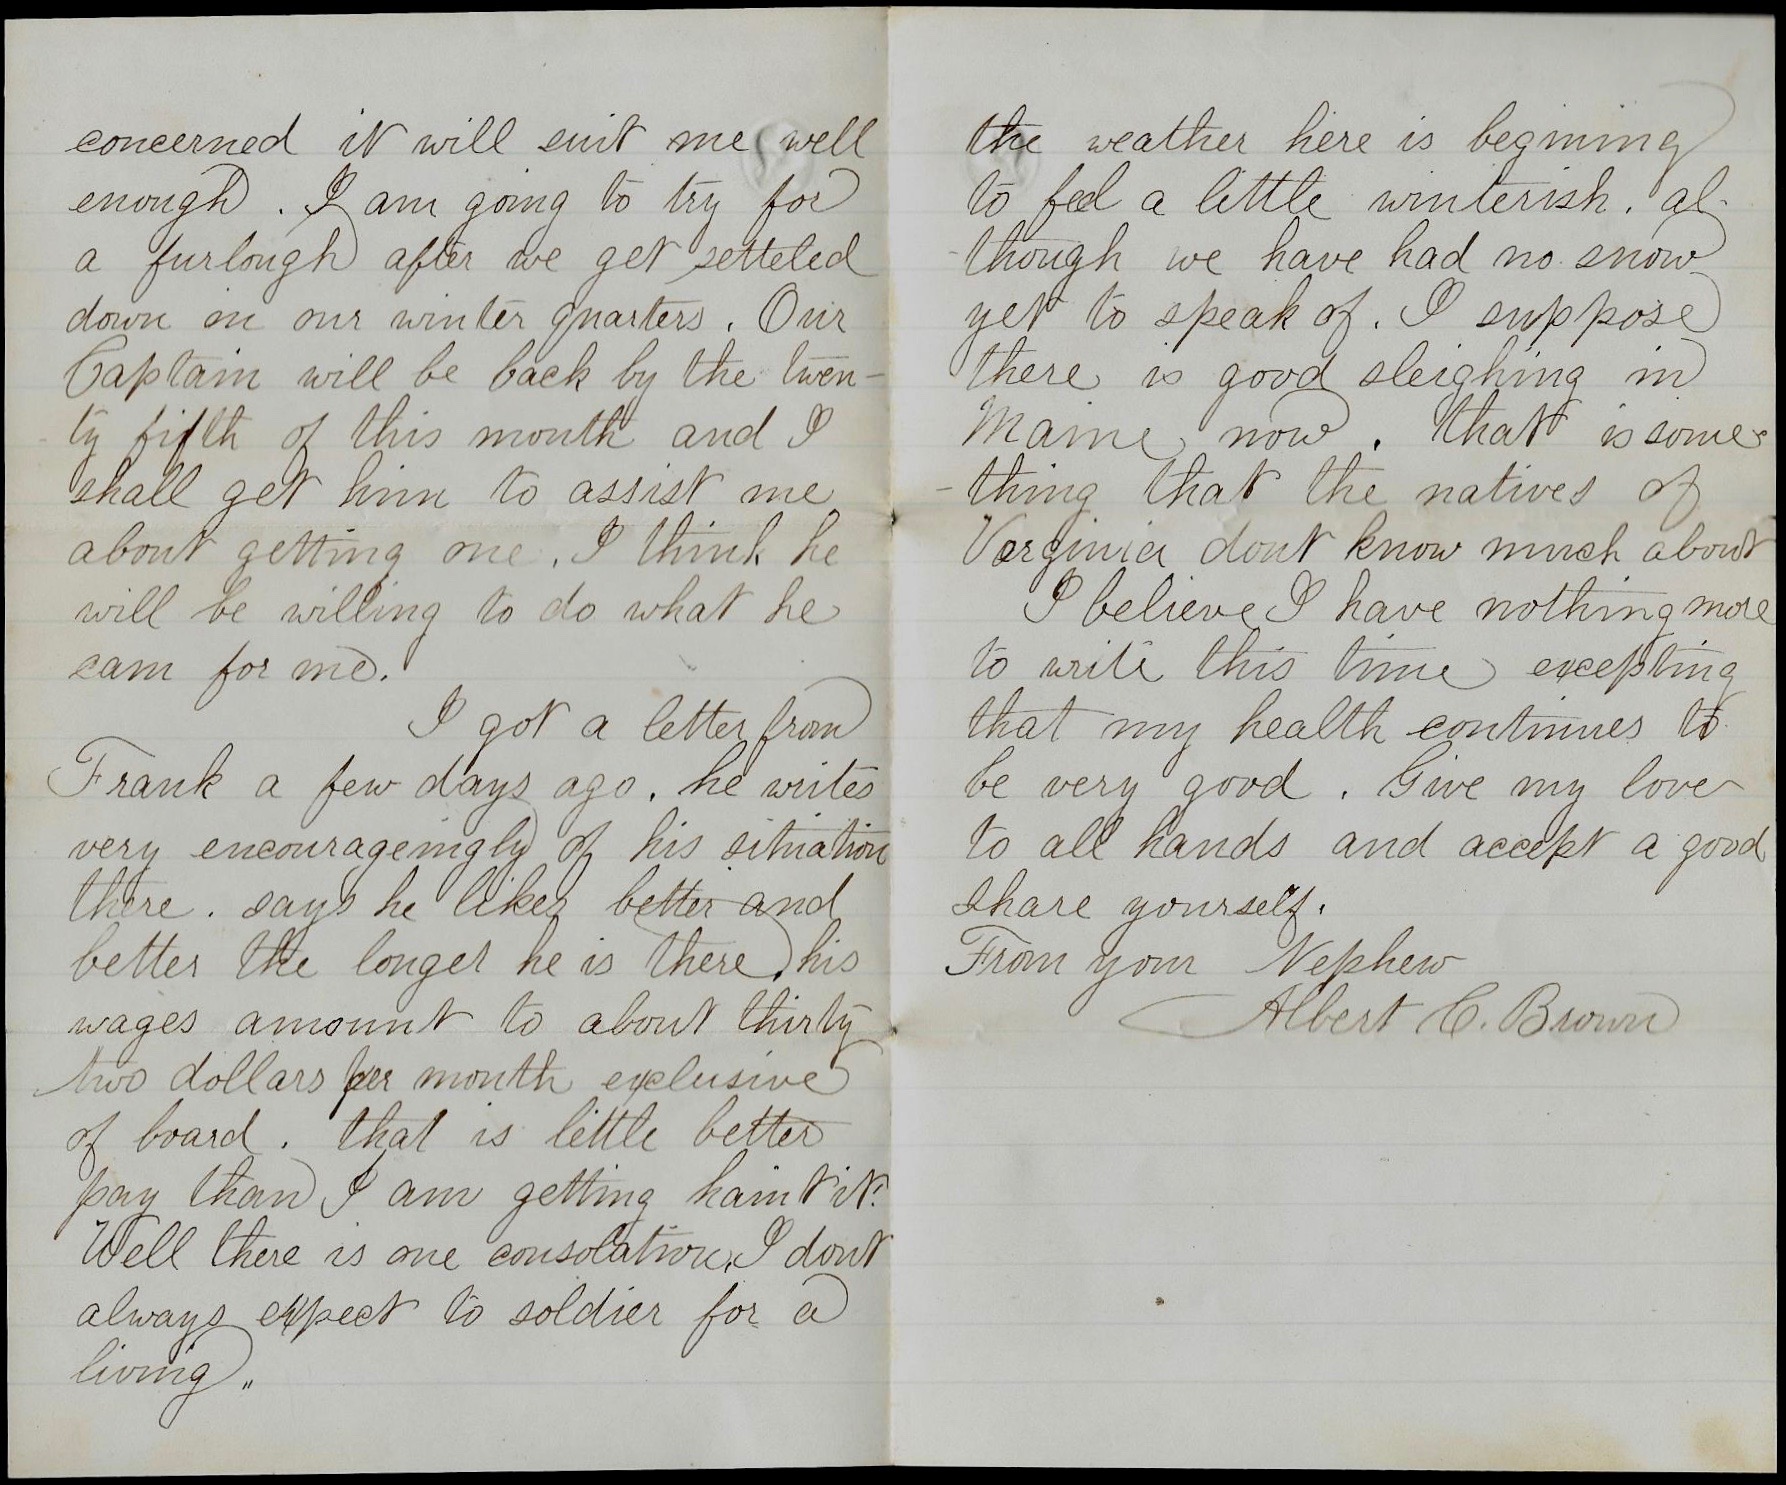 concerned it will suit me well
enough. I am going to try for
a furlough after we get setteled
down in our winter quarters. Our
Captain will be back by the twen-
ty fifth of this month and I
shall get him to assist me
about getting one. I think he
will be willing to do what he
can for me.
I got a letter from
Frank a few days ago. he writes
very encourageingly of his situation
there. says he likes better and
better the longer he is there, his
wages amount to about thirty
two dollars per month exclusive
of board. that is little better
pay than I am getting haint it?
Well there is one consolation, I dont
always expect to soldier for a
living.
the weather here is begining
to feel a little winterish. al-
-though we have had no snow
yet to speak of. I suppose
there is good sleighing in
Maine now. that is some-
-thing that the natives of
Verginia dont know much about
I believe I have nothing more
to write this time excepting
that my health continues to
be very good. Give my love
to all hands and accept a good
share yourself.
From your Nephew
Albert C. Brown